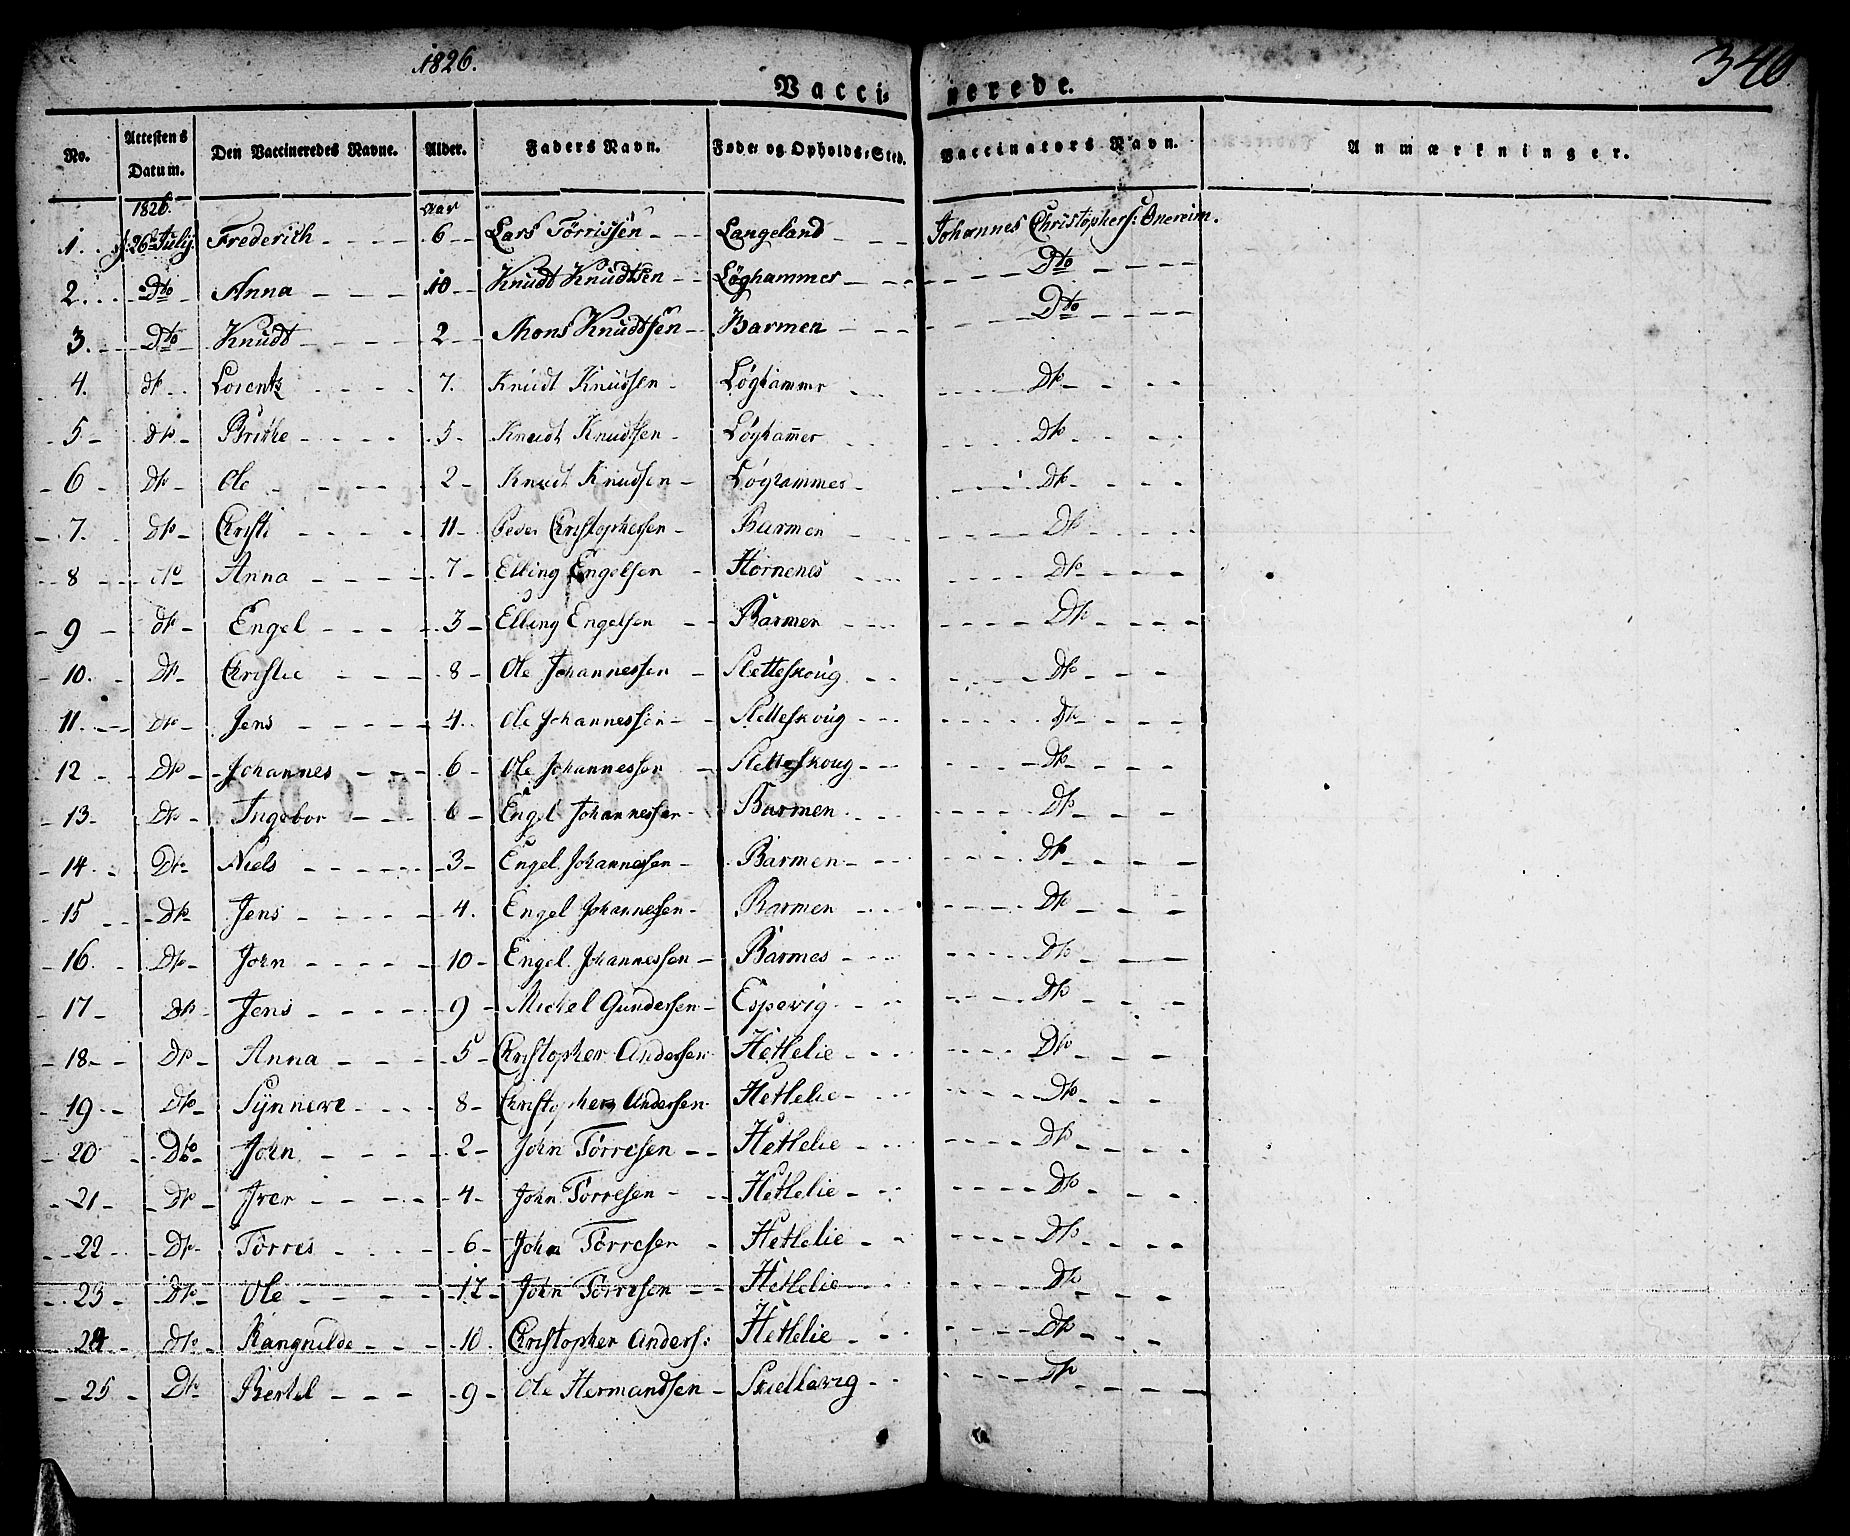 1826.
340
Vacci- nerede.
No. Attestens Datum. Den Vaccineredes Navne. Alder. Faders Navn. Føde- og Opholds-Sted. Vaccinators Navn. Anmærkninger.
1826. Aar
1. 26 July Frederich 6 Lars Tørrissen Langeland Johannes Christophers:
2. Dto Anna 10 Knudt Knudtsen Løghammer Dto
3. Dto Knudt 2 Mons Knudtsen Barmen Dto
4. dto Lorentz 7. Knudt Knudsen Løghammer Dto
5 dto Brithe 5 Knudt Knudtsen Løgham̅er Dto
6 Dto Ole 2 Knudt Knudsen Løghammer Dto
7. Dto Christi 11 Peder Christophersen Barmen Dto
8 dto Anna 7 Elling Engelsen Hornenes Dto
9 dto Engel 3 Elling Engelsen Barmen Dto
10. Dto Christie 8 Ole Johannessen Sletteskoug Dto
11. Dto Jens 4. Ole Johannessen Sletteskoug Dto
12 Dto Johannes 6 Ole Johannessen Sletteskoug Dto
13 Dto Ingebor 6 Engel Johannessen Barmen Dto
14. Dto Niels 3 Engel Johannessen Barmen Dto
15 Dto Jens 4. Engel Johannessen Barmen Dto
16. Dto John 10 Engel Johannessen Barmen Dto
17 Dto Jens 9 Michel Gundersen Espevig Dto
18 Dto Anna 5 Christopher Andersen Hetlelie Dto
19 Dto Synneve 8 Christopher Andersen Hetlelie Dto
20 Dto John 2 John Tørresen Hetlelie Dto
21 Dto Iver 4 John Tørresen Hetlelie Dto
22 Dto Tørres 6 John Tørresen Hetlelie Dto
23 Dto Ole 12 John Tørresen Hetlelie Dto
24 Dto Rangnilde 10 Christopher Anders: Hetlelie Dto
25 Dto Bertel 9 Ole Hermandsen Skiellevig Dto